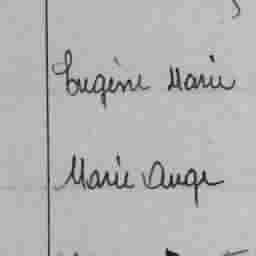 Eugène Marie
Marie Ange